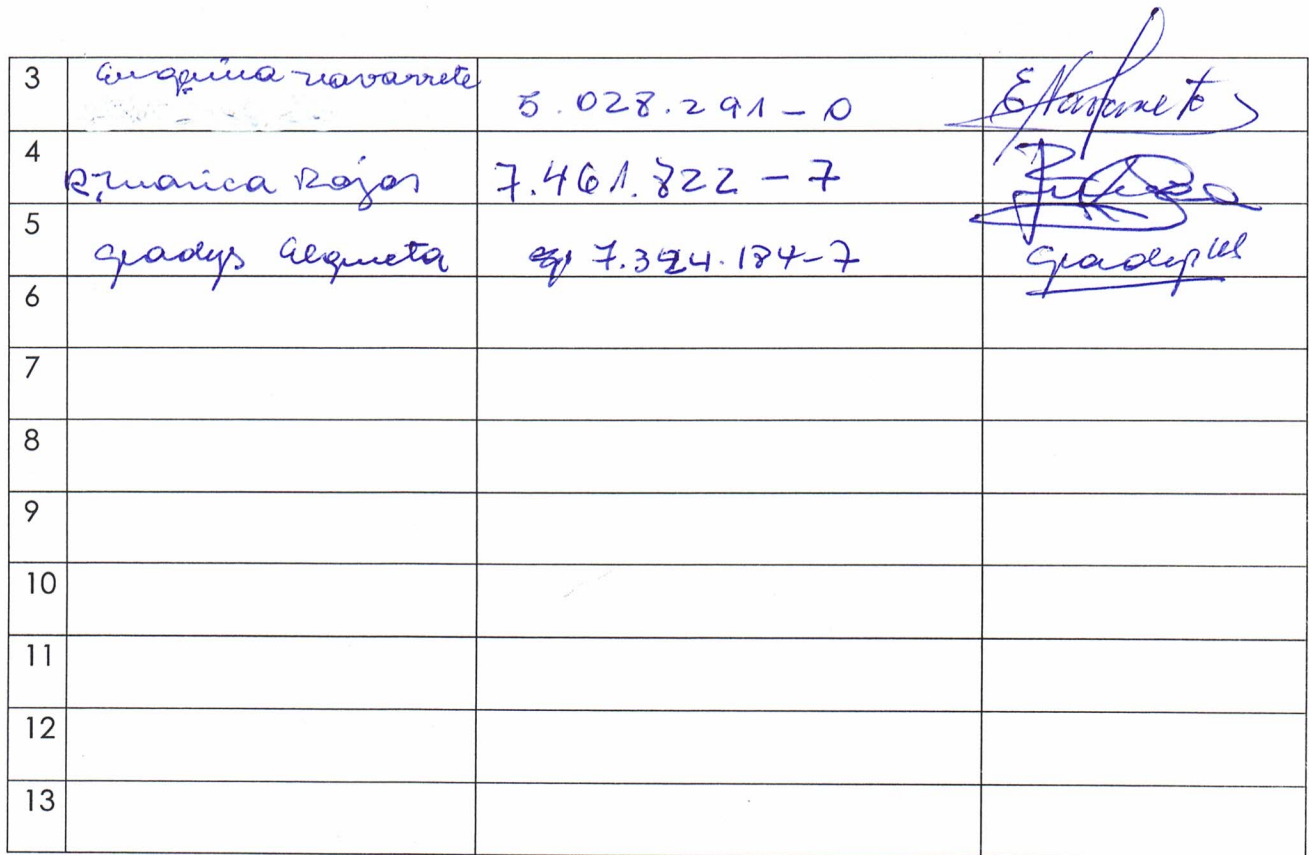 3 Eugenia navarrete 5.028.291-0 ENavarrete
4 R, Monica Rojas 7.461.822-7
5 Gladys Elgueta 7.324.184-7 Gladys
6
7
8
9
10
11
12
13